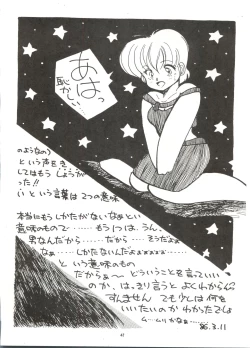 あはっ
恥かし
のようなの)
という声をき
してはもうしょうが
った!!
いという言葉は2つの意味
本当にもうしかたがないなぁとい
意味のもので…… もう1つは、うん、
男なんだから……だから…… そうだよぉ
なぁ…… しかたないんだよぉ
という意味のもの
だからぁ〜 どういうことを言っていい
のか、はっきり言うと よくわからん。
すんません でも少しは何を
いいたいのか わかったでしょ
'86.3.11